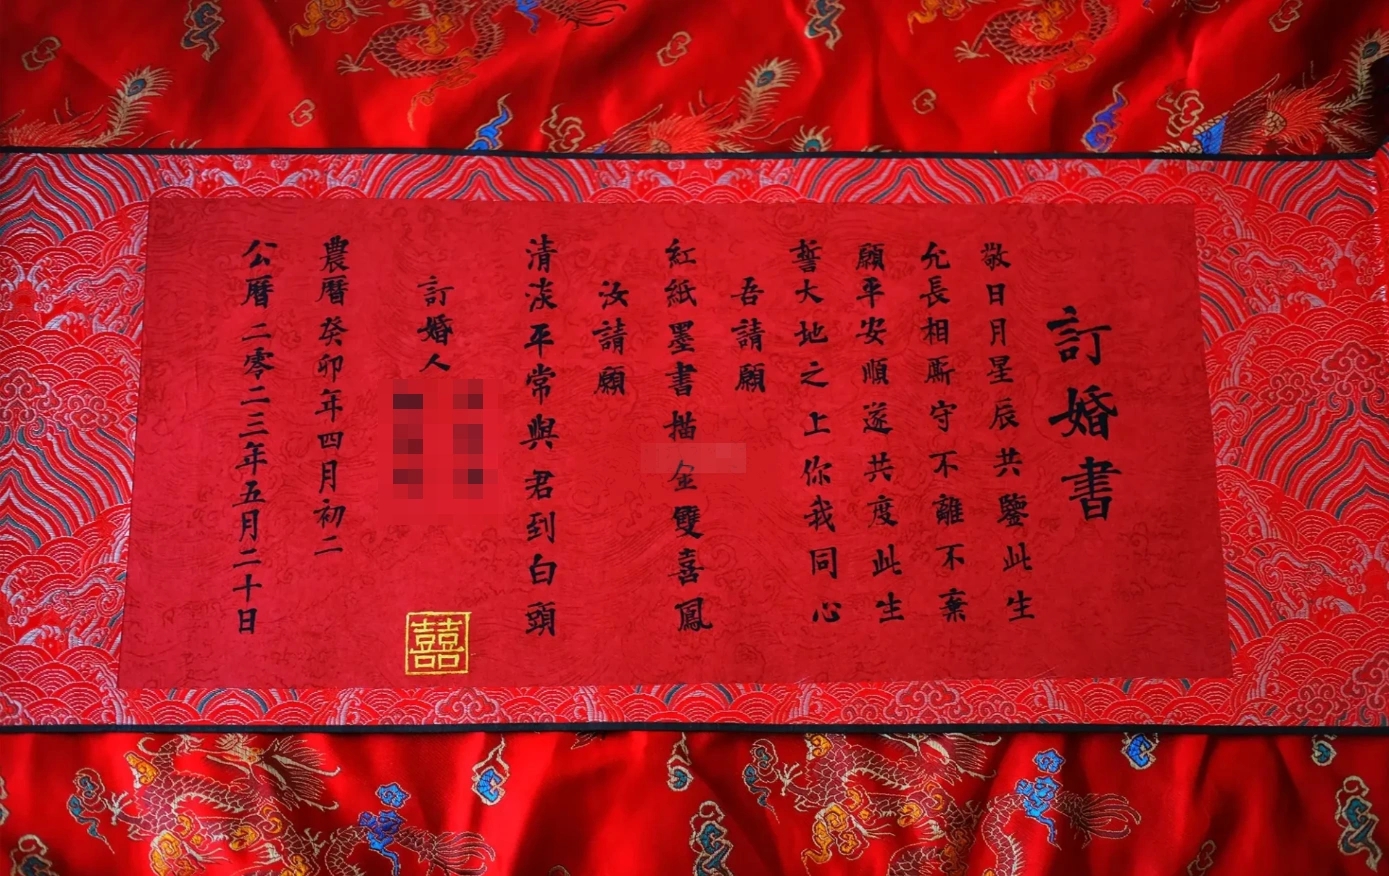 訂婚書
敬日月星辰共鑒此生
允長相厮守不離不棄
願平安順遂共度此生
誓大地之上你我同心
吾請願
紅紙墨書描金雙喜鳳
汝請願
清淡平常與君到白頭
訂婚人
囍
農曆癸卯年四月初二
公曆二零二三年五月二十日